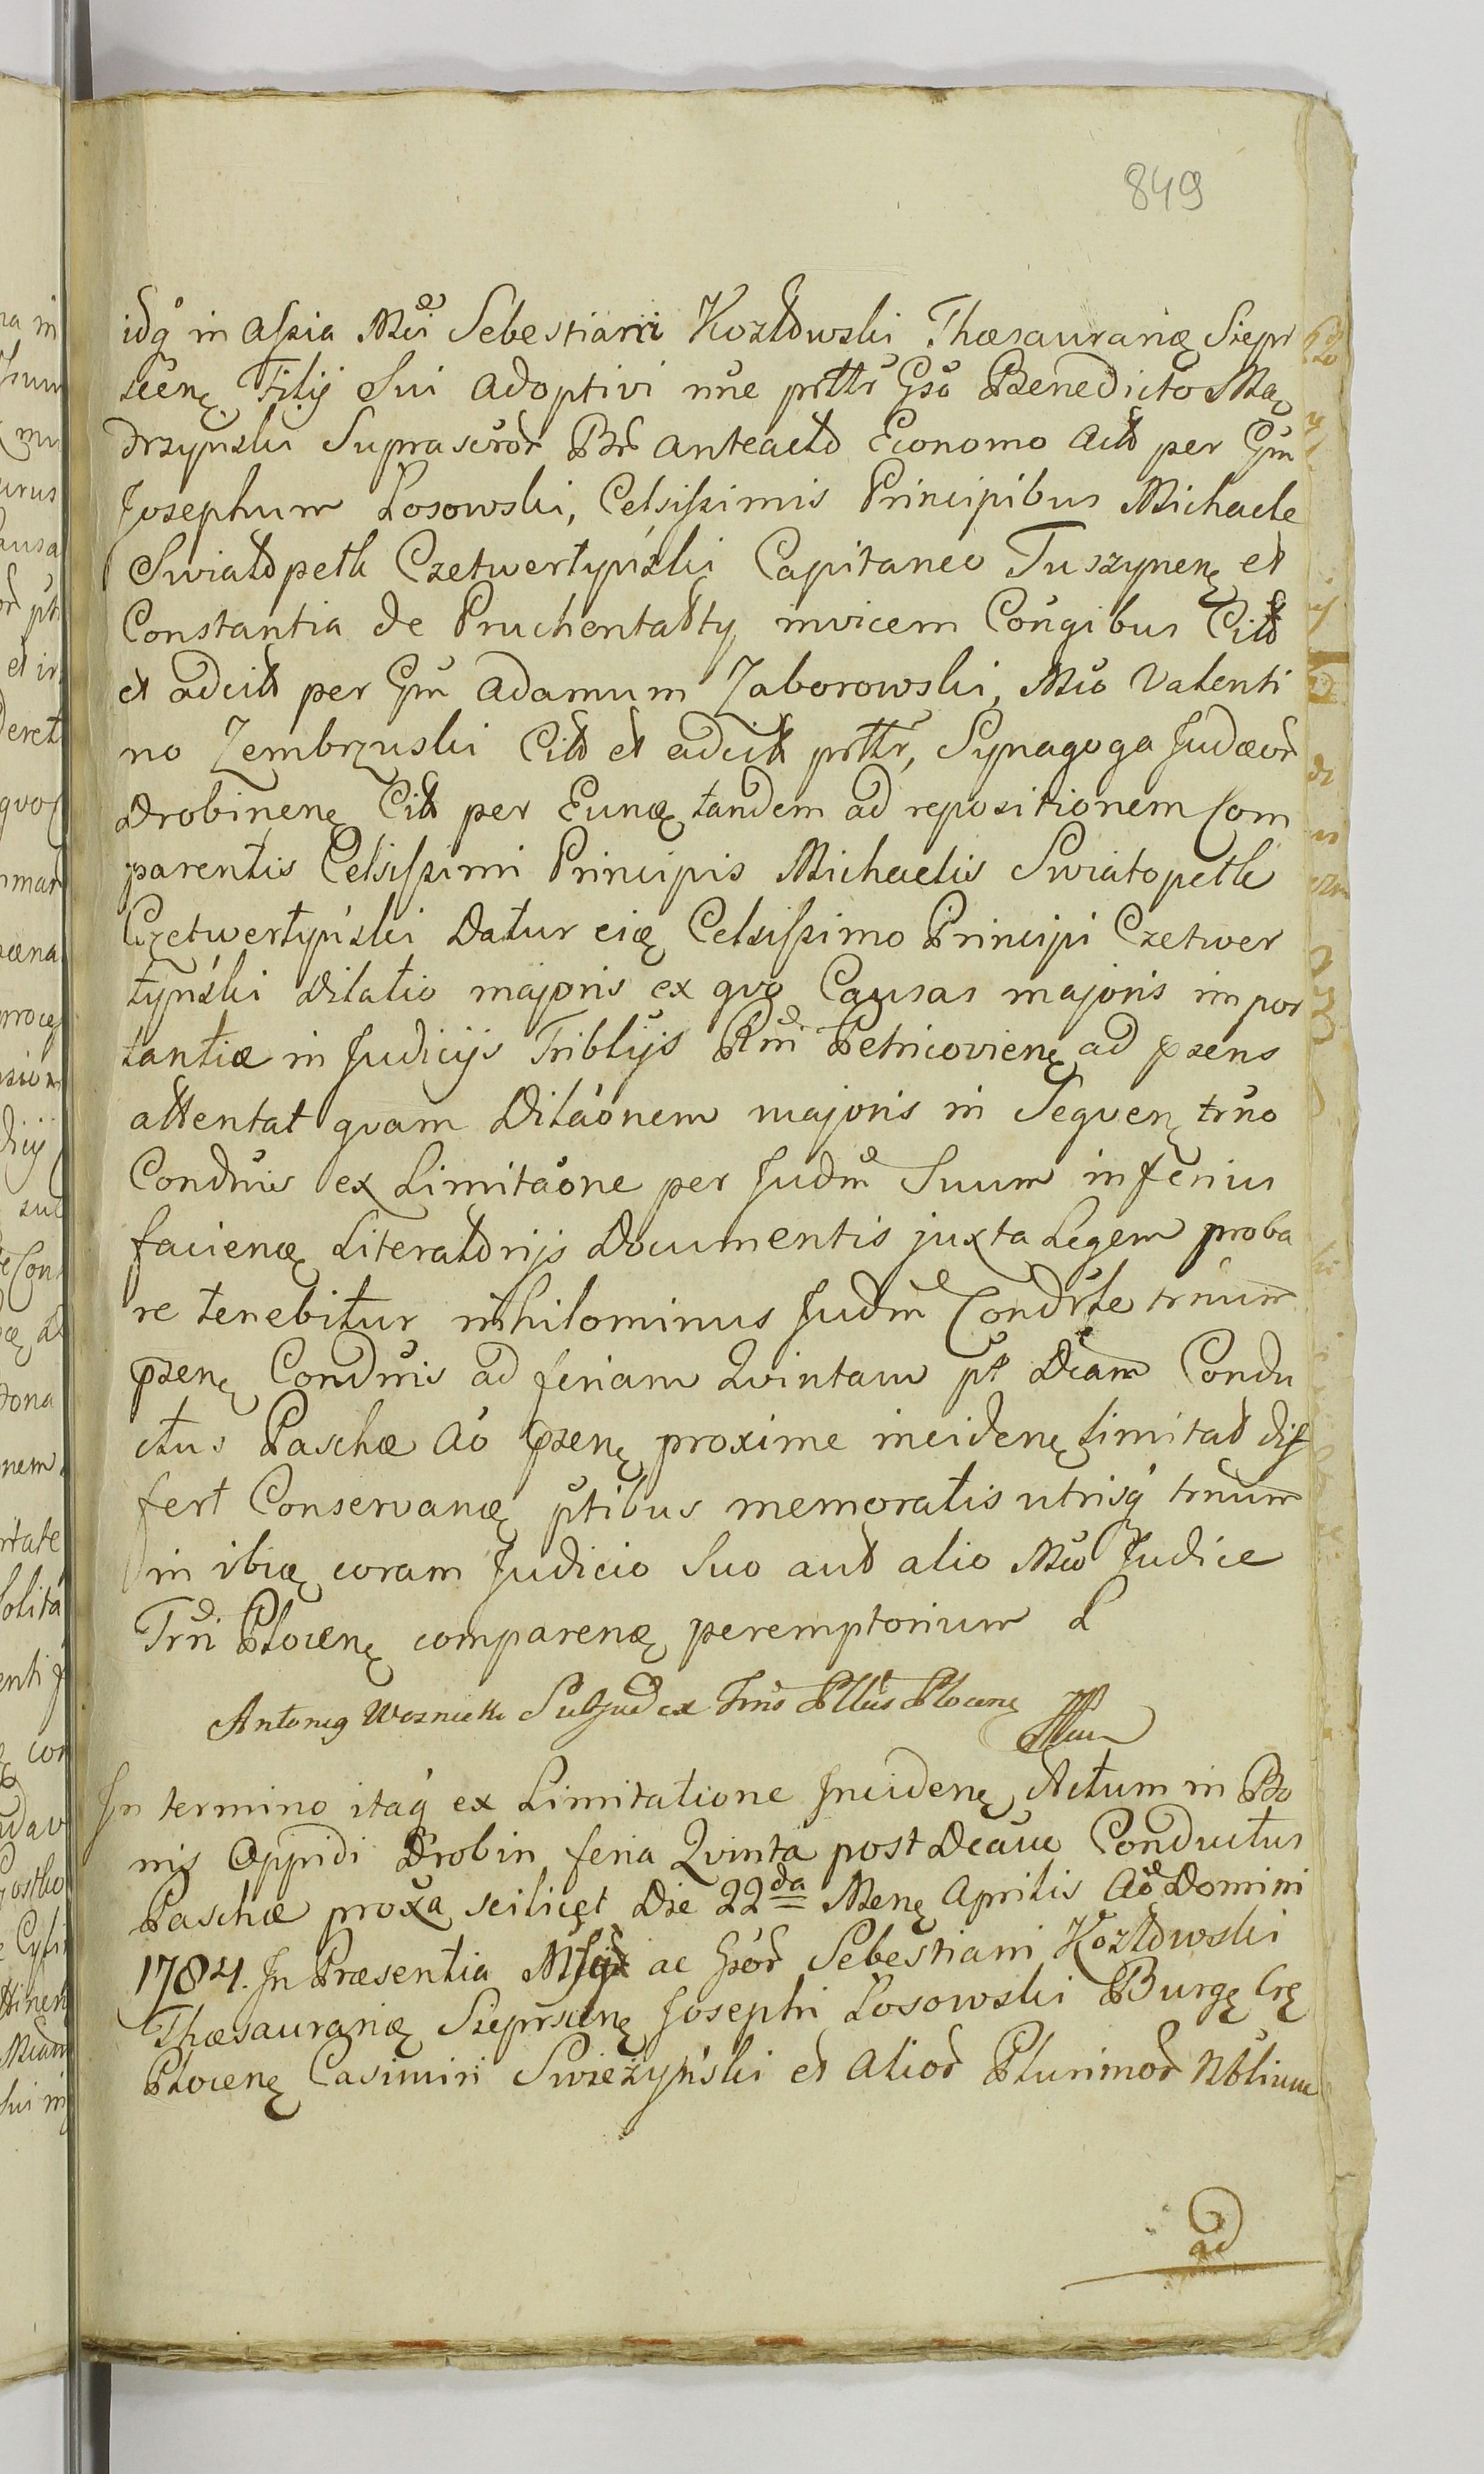 849
idq in assia Mci Sebestiani Kozłowski Thæsaurarię Siepr
scenę Filij Sui adoptivi nũc prttr Gso Benedicto Mą
drzyński Suprascror Br anteacto Economo acto per Gm
Josephum Łosowski, Celsissimis Principibus Michaele
Swiatopełk Czetwertyński Capitaneo Tuszynenę et
Constantia de Pruchentalty invicem Cougibus Cito
et adcito per Gm Adamum Zaborowski, Mco Valenti
no Zembrzuski Cito et adcit prttr, Synagoga Judæor
Drobinenę Cit per Eunę tandem ad repositionem Com
parentis Celsissimi Principis Michaelis Swiatopełk
Czetwertyński Datur eię Celsissimo Principi Czetwer
tyński Dilatio majoris ex qvo Causas majoris impor
tantiæ in Judicijs Triblijs Rni Petricovienę ad psens
attentat qvam Dilaonem majoris in Seqvenę trno
Condnis ex Limitaone per Judm Suum inferius
facienę Literatorijs Documentis juxta Legem proba
re tenebitur nihilominus Judm Condrle trnum
psenę Condnis ad feriam Qvintam pt Dcam Condu
ctus Paschæ Ao psenę proxime incidenę Limitat dif
fert Conservanę ptibus memoratis utrisq trnum
in ibię coram Judicio Suo aut alio Mco Judice
Trri Płocenę comparenę peremptorium L
Antonig Woznicki Subjudex Trris Pttus Płocenę
In termino itaq ex Limitatione Incidenę Actum in Bo
nis Oppidi Drobin feria Qvinta post Dcauc Conductus
Paschæ proxa scilicęt Die 22da Menę Aprilis Ao Domini
1784. In Præsentia ac Gsor Sebestiani Kozłowski
Thæsaurarię Sieprscenę Josephi Łosowski Burgę Crę
Płocenę Casimiri Swieżyński et Alior Plurimor Nblium
ad